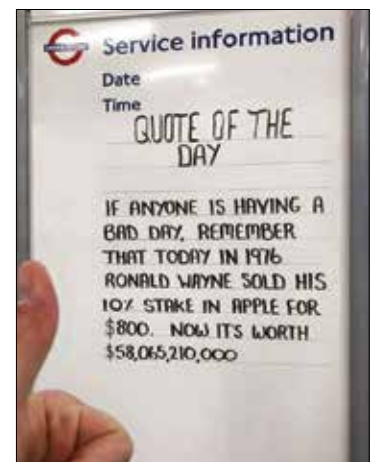 Service information
Date
Time
QUOTE OF THE
DAY
IF ANYONE IS HAVING A
BAD DAY, REMEMBER
THAT TODAY IN 1976
RONALD WAYNE SOLD HIS
10% STAKE IN APPLE FOR
$800. NOW ITS WORTH
$58,065,210,000